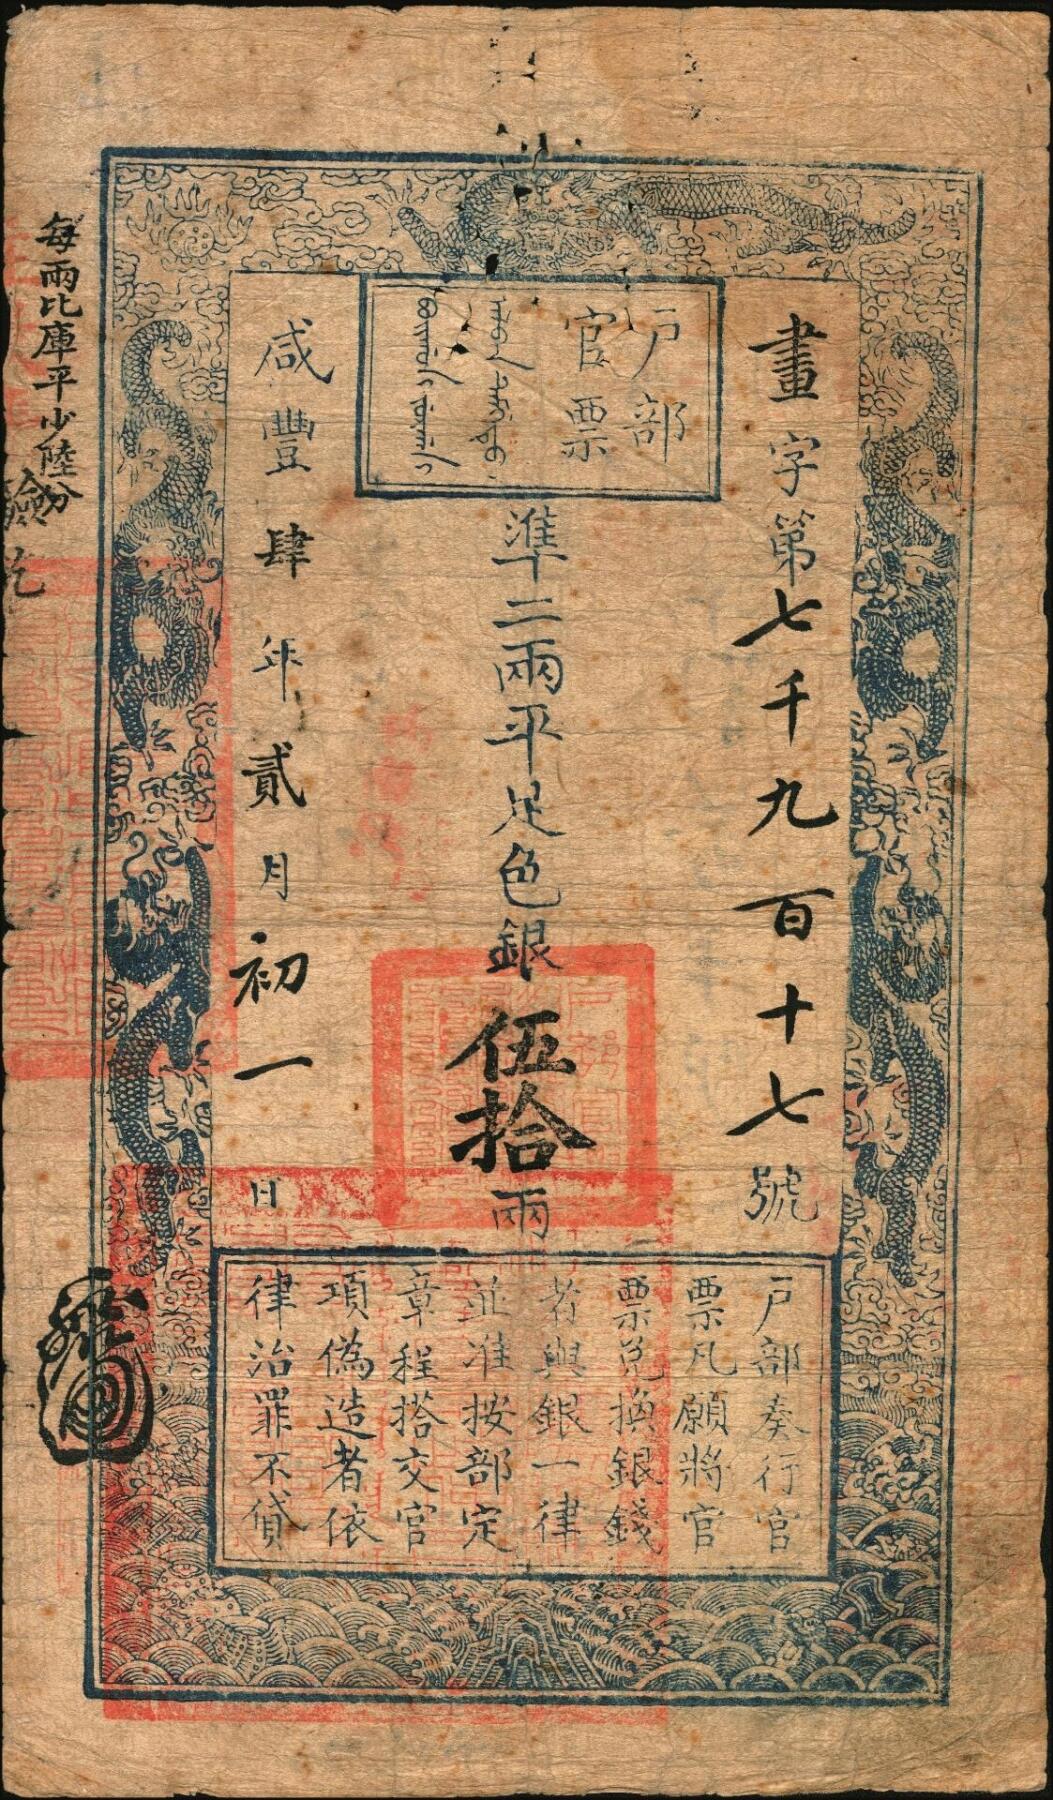 戶部
官票
畫字第七千九百十七號
準二兩平足色銀伍拾兩
咸豐肆年貳月初一日
每兩比庫平少陸分
驗訖
戶部奏行官
票凡願將官
票兌換銀錢
者與銀一律
並准按部定
章程搭交官
項偽造者依
律治罪不貸